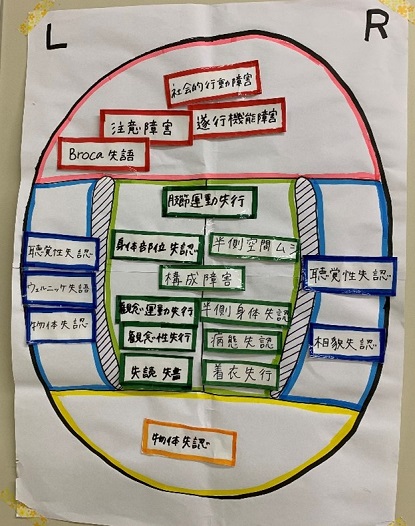 L
R
社会的行動障害
注意障害
遂行機能障害
Broca失語
肢節運動失行
聴覚性失認
身体部位失認
半側空間ムシ
聴覚性失認
構成障害
ウェルニッケ失語
観念運動失行
半側身体失認
物体失認
観念性失行
病態失認
相貌失認
失読 失書
着衣失行
物体失認